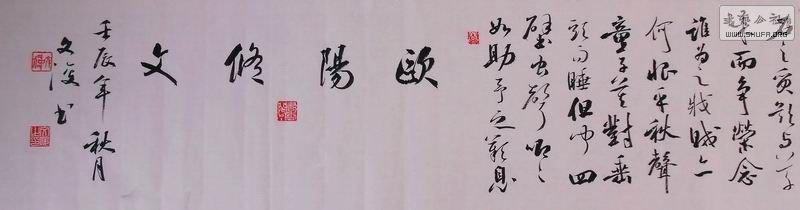 之質欲与草
木而爭榮念
誰為之戕賊亦
何恨乎秋聲
童子莫對垂
頭而睡但聞四
壁虫聲唧々
如助予之歎息
歐陽脩文
壬辰年秋月
文书
公社
WWW.SHUFA.ORG